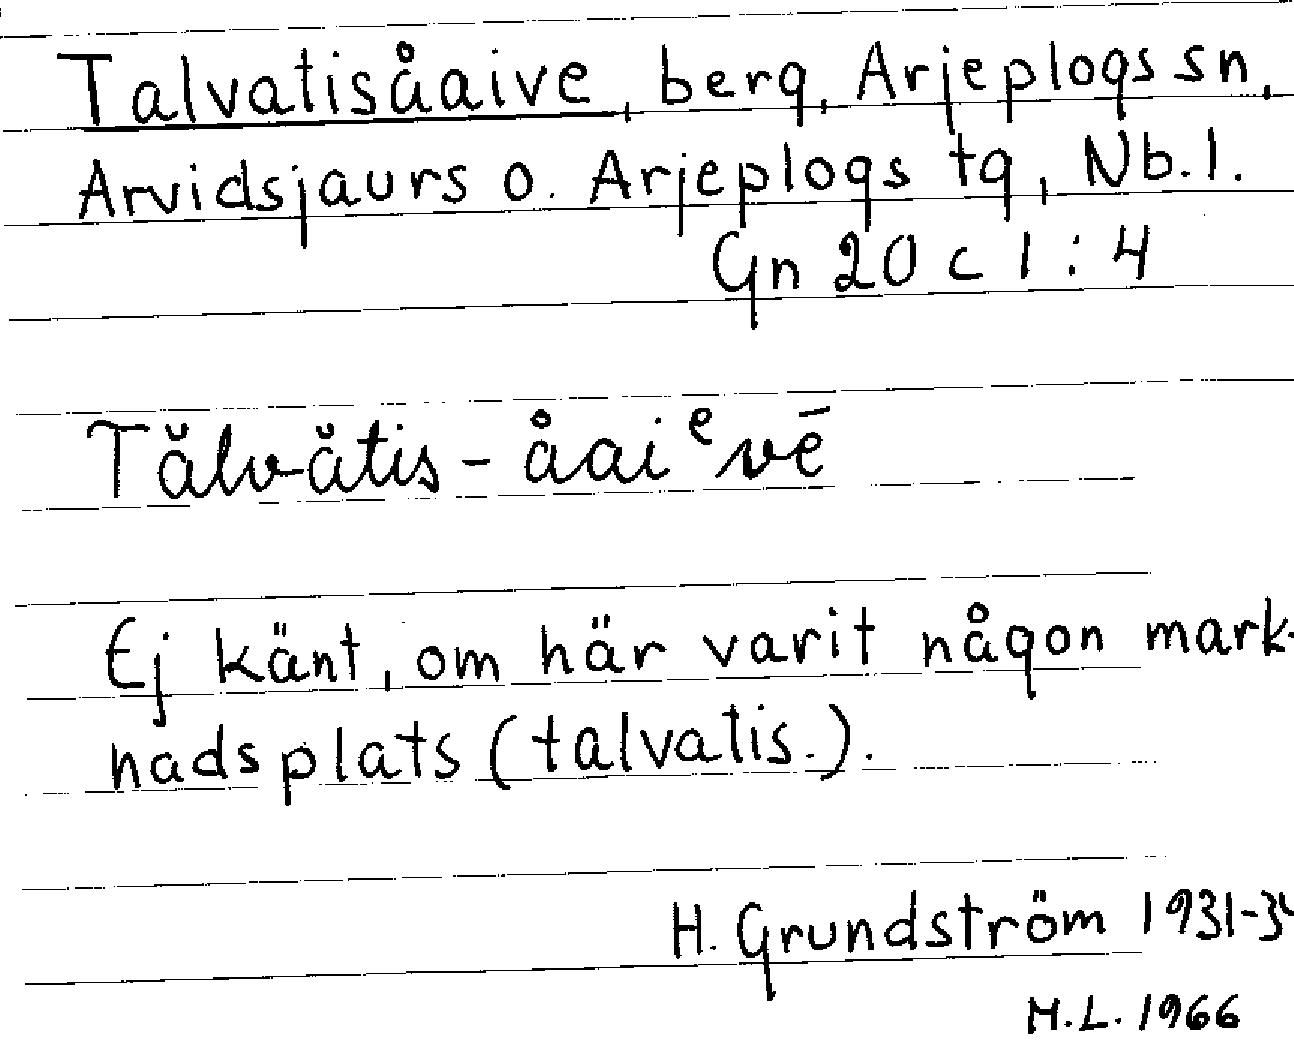 Talvatisåaive, berg, Arjeplogs sn,
Arvidsjaurs o. Arjeplogs tg, Nb. l.
Gn 20 c 1 : 4
Tălvătis-åaiᵉvē
Ej känt, om här varit någon mark-
nadsplats (talvatis.).
H. Grundström 1931-34
M.L. 1966